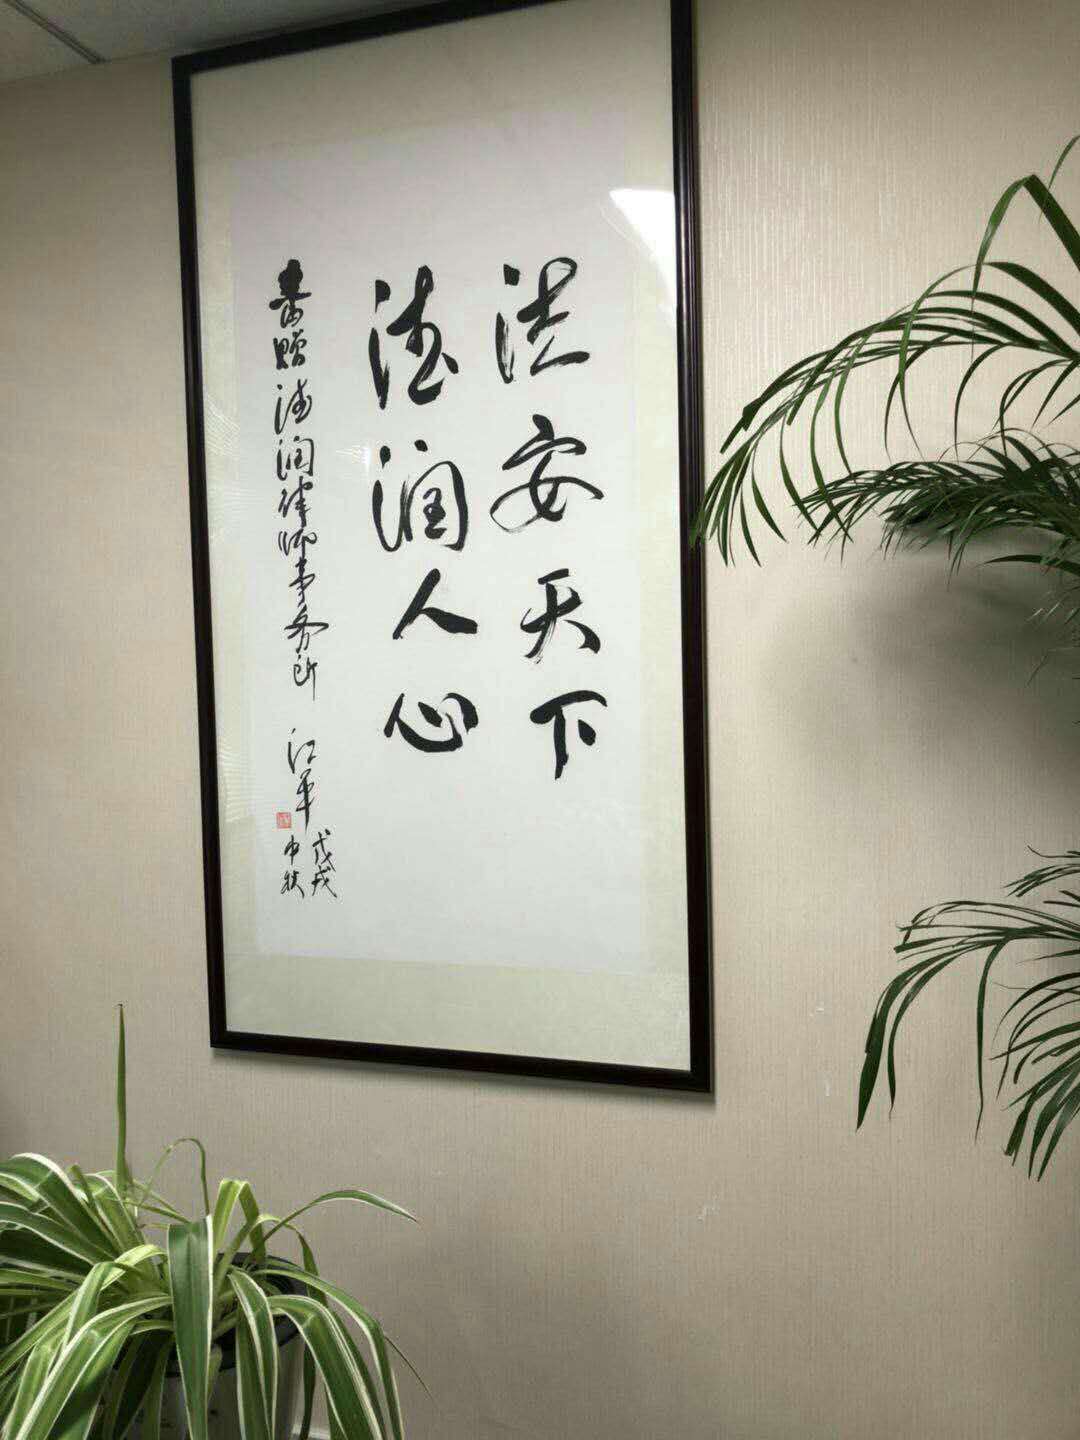 法安天下
德润人心
书赠德润律师事务所 江平
戊戌
中秋